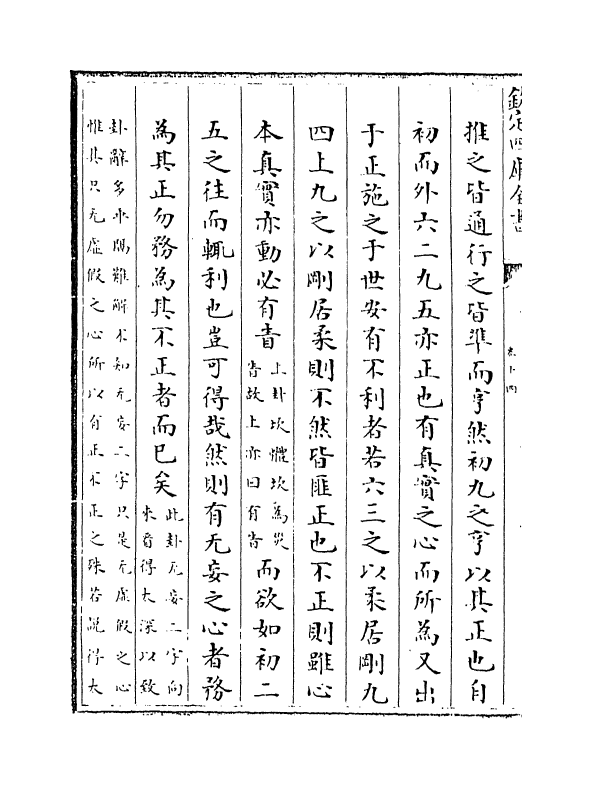 欽定四庫全書
卷十四
推之皆通行之皆準而亨然初九之亨以其正也自
初而外六二九五亦正也有真實之心而所為又出
于正施之于世安有不利者若六三之以柔居剛九
四上九之以剛居柔則不然皆匪正也不正則雖心
本真實亦動必有眚
上卦坎體坎為災
眚故上亦曰有眚
而欲如初二
五之往而輒利也豈可得哉然則有无妄之心者務
為其正勿務為其不正者而已矣
此卦无妄二字向
來看得太深以致
卦辭多乖隔難解不知无妄二字只是无虛假之心
惟其只无虛假之心所以有正不正之殊若說得太